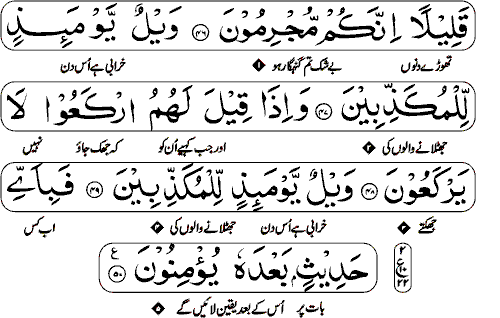 قَلِيْلًا اِنَّكُمْ مُّجْرِمُوْنَ ۝۴۶ وَيْلٌ يَّوْمَئِذٍ
تھوڑے دنوں بے شک تم گنہگار ہو ۱ خرابی ہے اُس دن
لِّلْمُكَذِّبِيْنَ ۝۴۷ وَاِذَا قِيْلَ لَهُمُ ارْكَعُوْا لَا
جھٹلانے والوں کی ۲ اور جب کہیے اُن کو کہ جھک جاؤ نہیں
يَرْكَعُوْنَ ۝۴۸ وَيْلٌ يَّوْمَئِذٍ لِّلْمُكَذِّبِيْنَ ۝۴۹ فَبِاَيِّ
جھکتے ۳ خرابی ہے اُس دن جھٹلانے والوں کی ۴ اب کس
حَدِيْثٍۭ بَعْدَهٗ يُؤْمِنُوْنَ ۝۵۰ ع
۲ ع ۱۰ ۲۲
بات پر اُس کے بعد یقین لائیں گے ۵